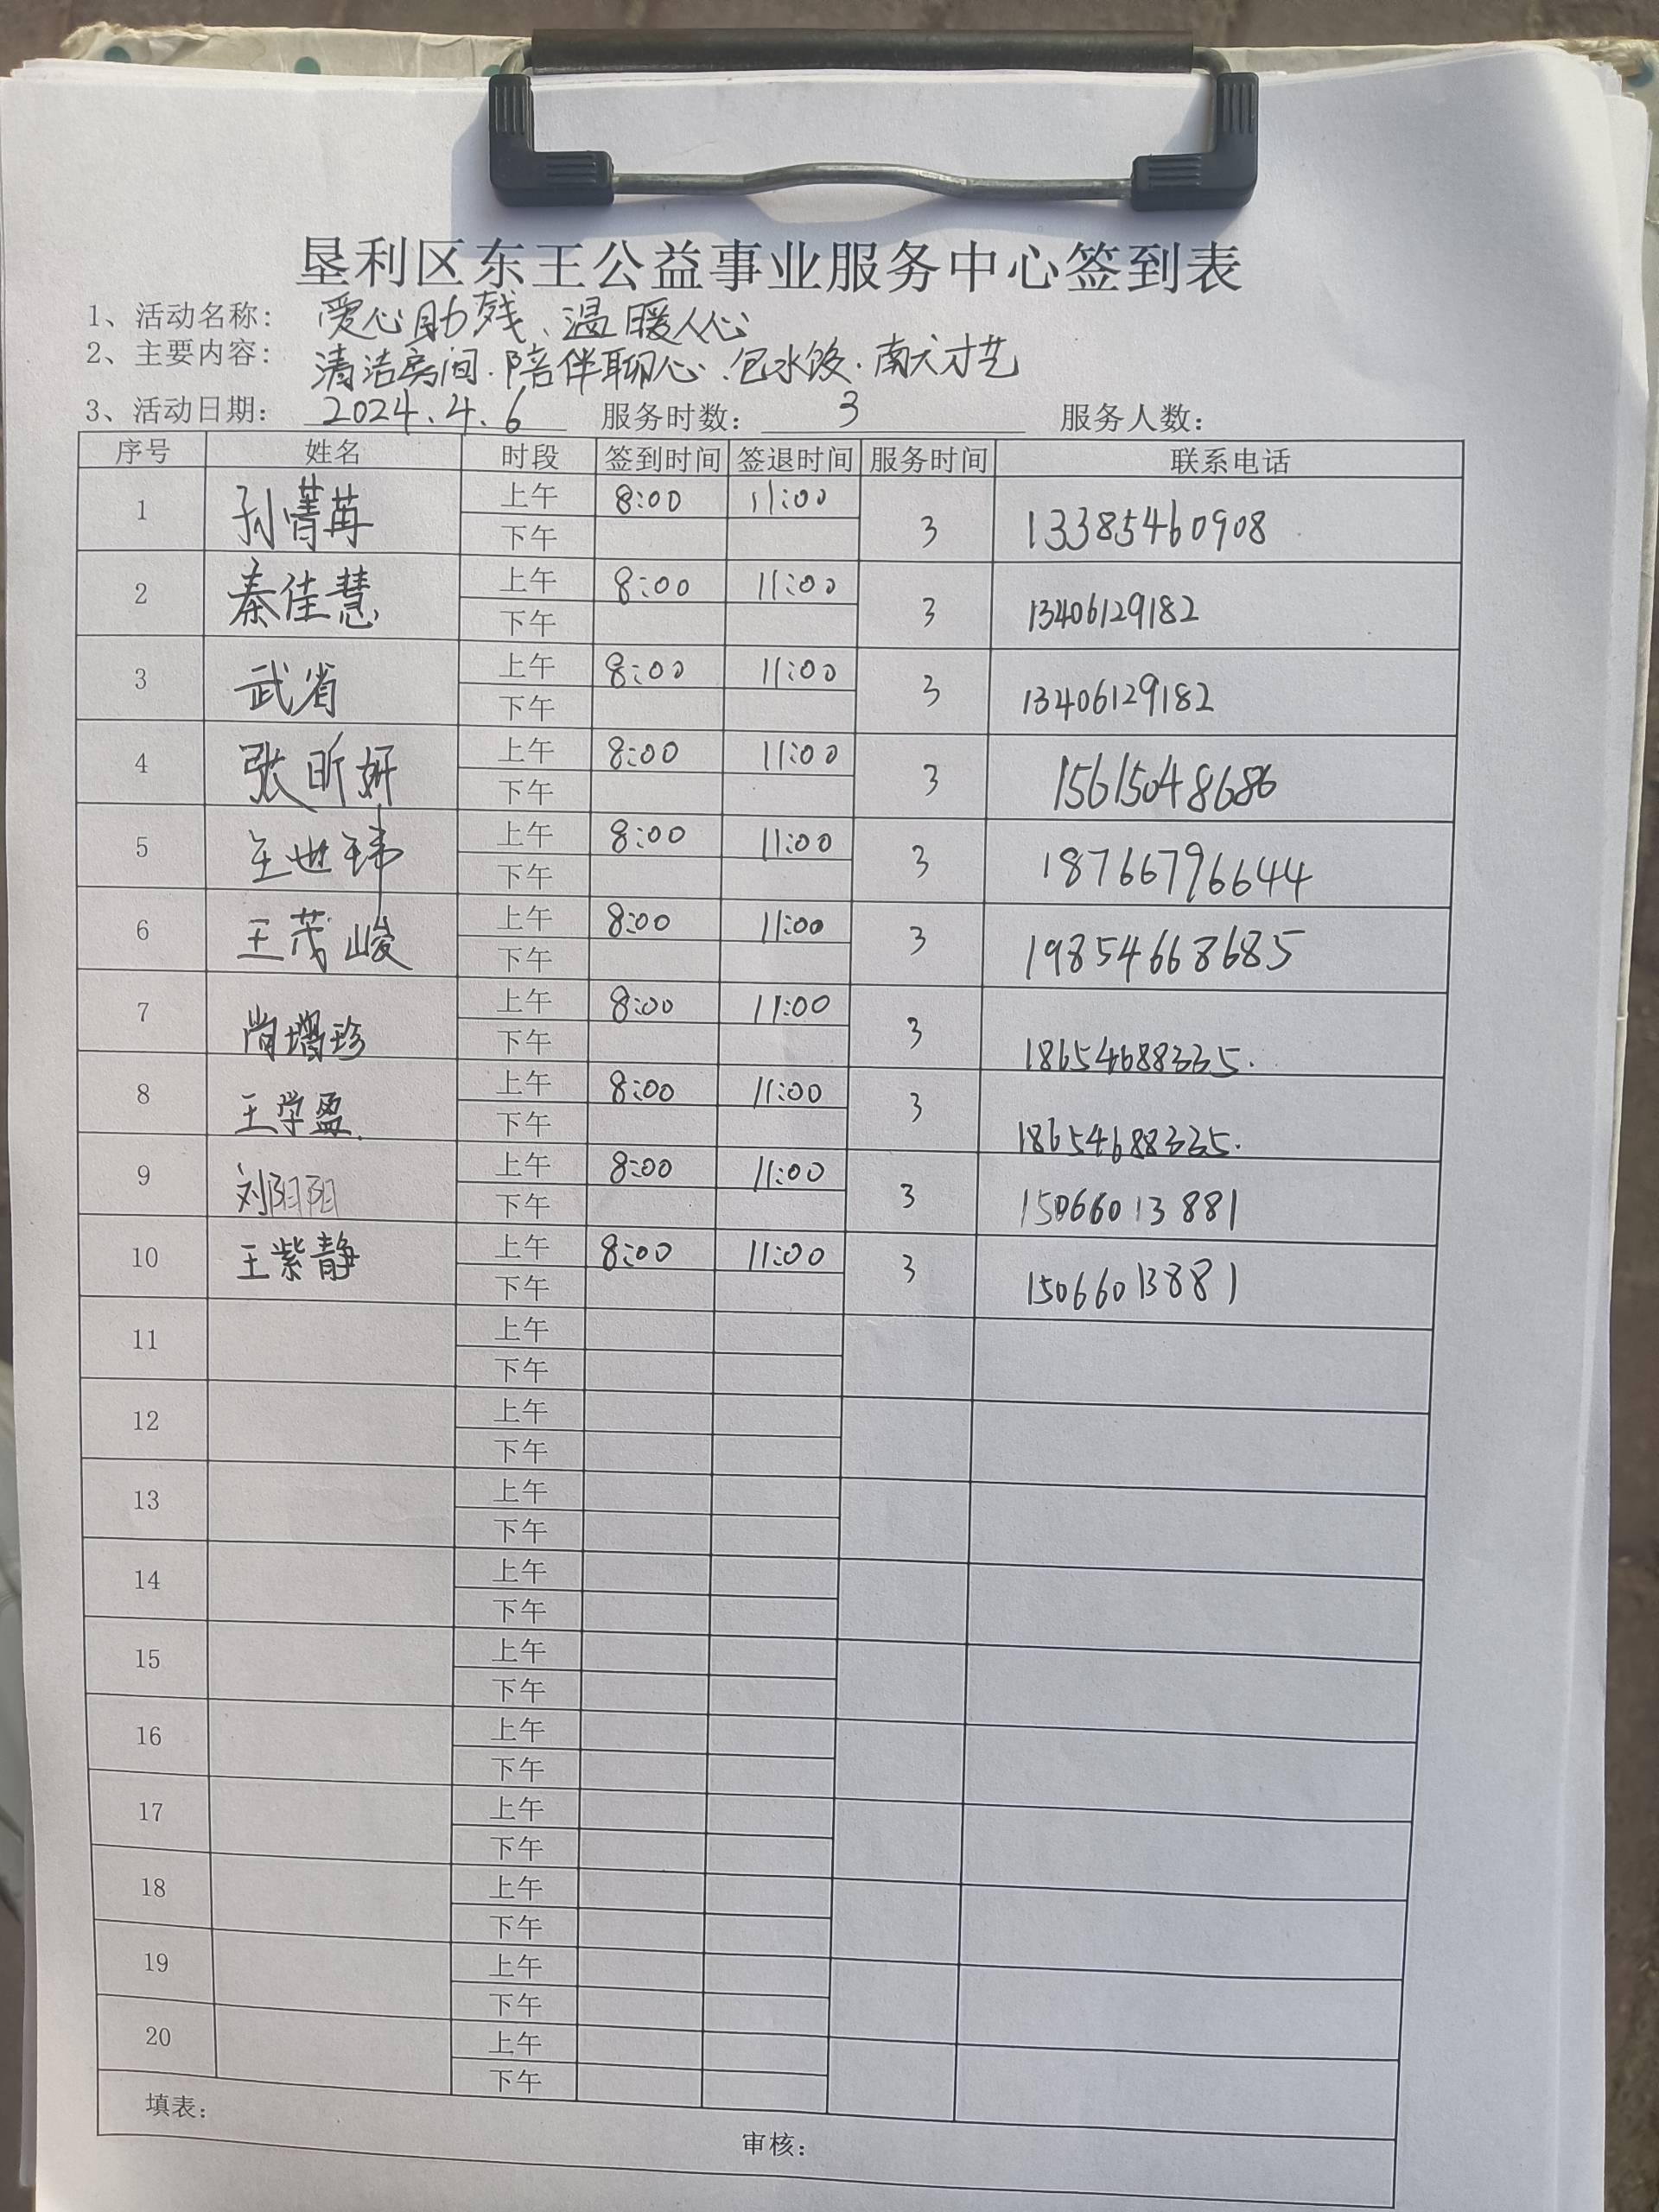 垦利区东王公益事业服务中心签到表
1、活动名称: 爱心助残、温暖人心
2、主要内容: 清洁房间.陪伴聊心.包水饺.南大才艺
3、活动日期: 2024.4.6 服务时数: 3 服务人数:
序号 姓名 时段 签到时间 签退时间 服务时间 联系电话
1 孙菁苒 上午 8:00 11:00 3 13385460908
下午
2 秦佳慧 上午 8:00 11:00 3 13406129182
下午
3 武省 上午 8:00 11:00 3 13406129182
下午
4 张昕妍 上午 8:00 11:00 3 15615048686
下午
5 王世玮 上午 8:00 11:00 3 18766796644
下午
6 王茂峻 上午 8:00 11:00 3 19854668685
下午
7 尚增珍 上午 8:00 11:00 3 18654688335.
下午
8 王学盈 上午 8:00 11:00 3 18654688335.
下午
9 刘阳阳 上午 8:00 11:00 3 15066013881
下午
10 王紫静 上午 8:00 11:00 3 15066013881
下午
11 上午
下午
12 上午
下午
13 上午
下午
14 上午
下午
15 上午
下午
16 上午
下午
17 上午
下午
18 上午
下午
19 上午
下午
20 上午
下午
填表: 审核: